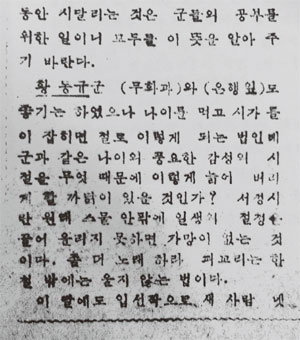 동안 시달리는 것은 군들의 공부를
위한 일이니 모두들 이 뜻을 알아 주
기 바란다.
황동규군 (무회과)와 (은행잎)도
좋기는 하였으나 나이를 먹고 시가 틀
이 잡히면 절로 이렇게 되는 법인데
군과 같은 나이와 풍요한 감성의 시
절을 무엇 때문에 이렇게 늙어 버리
게 할 까닭이 있을 것인가? 서정시
란 원래 스물 안팎에 일생의 절정
끌어 올리지 못하면 가망이 없는 것
이다. 좀 더 노래 하라. 꾀꼬리는 한
철 밖에는 울지 않는 법이다.
이 달에도 입선작으로 새 사람 넷